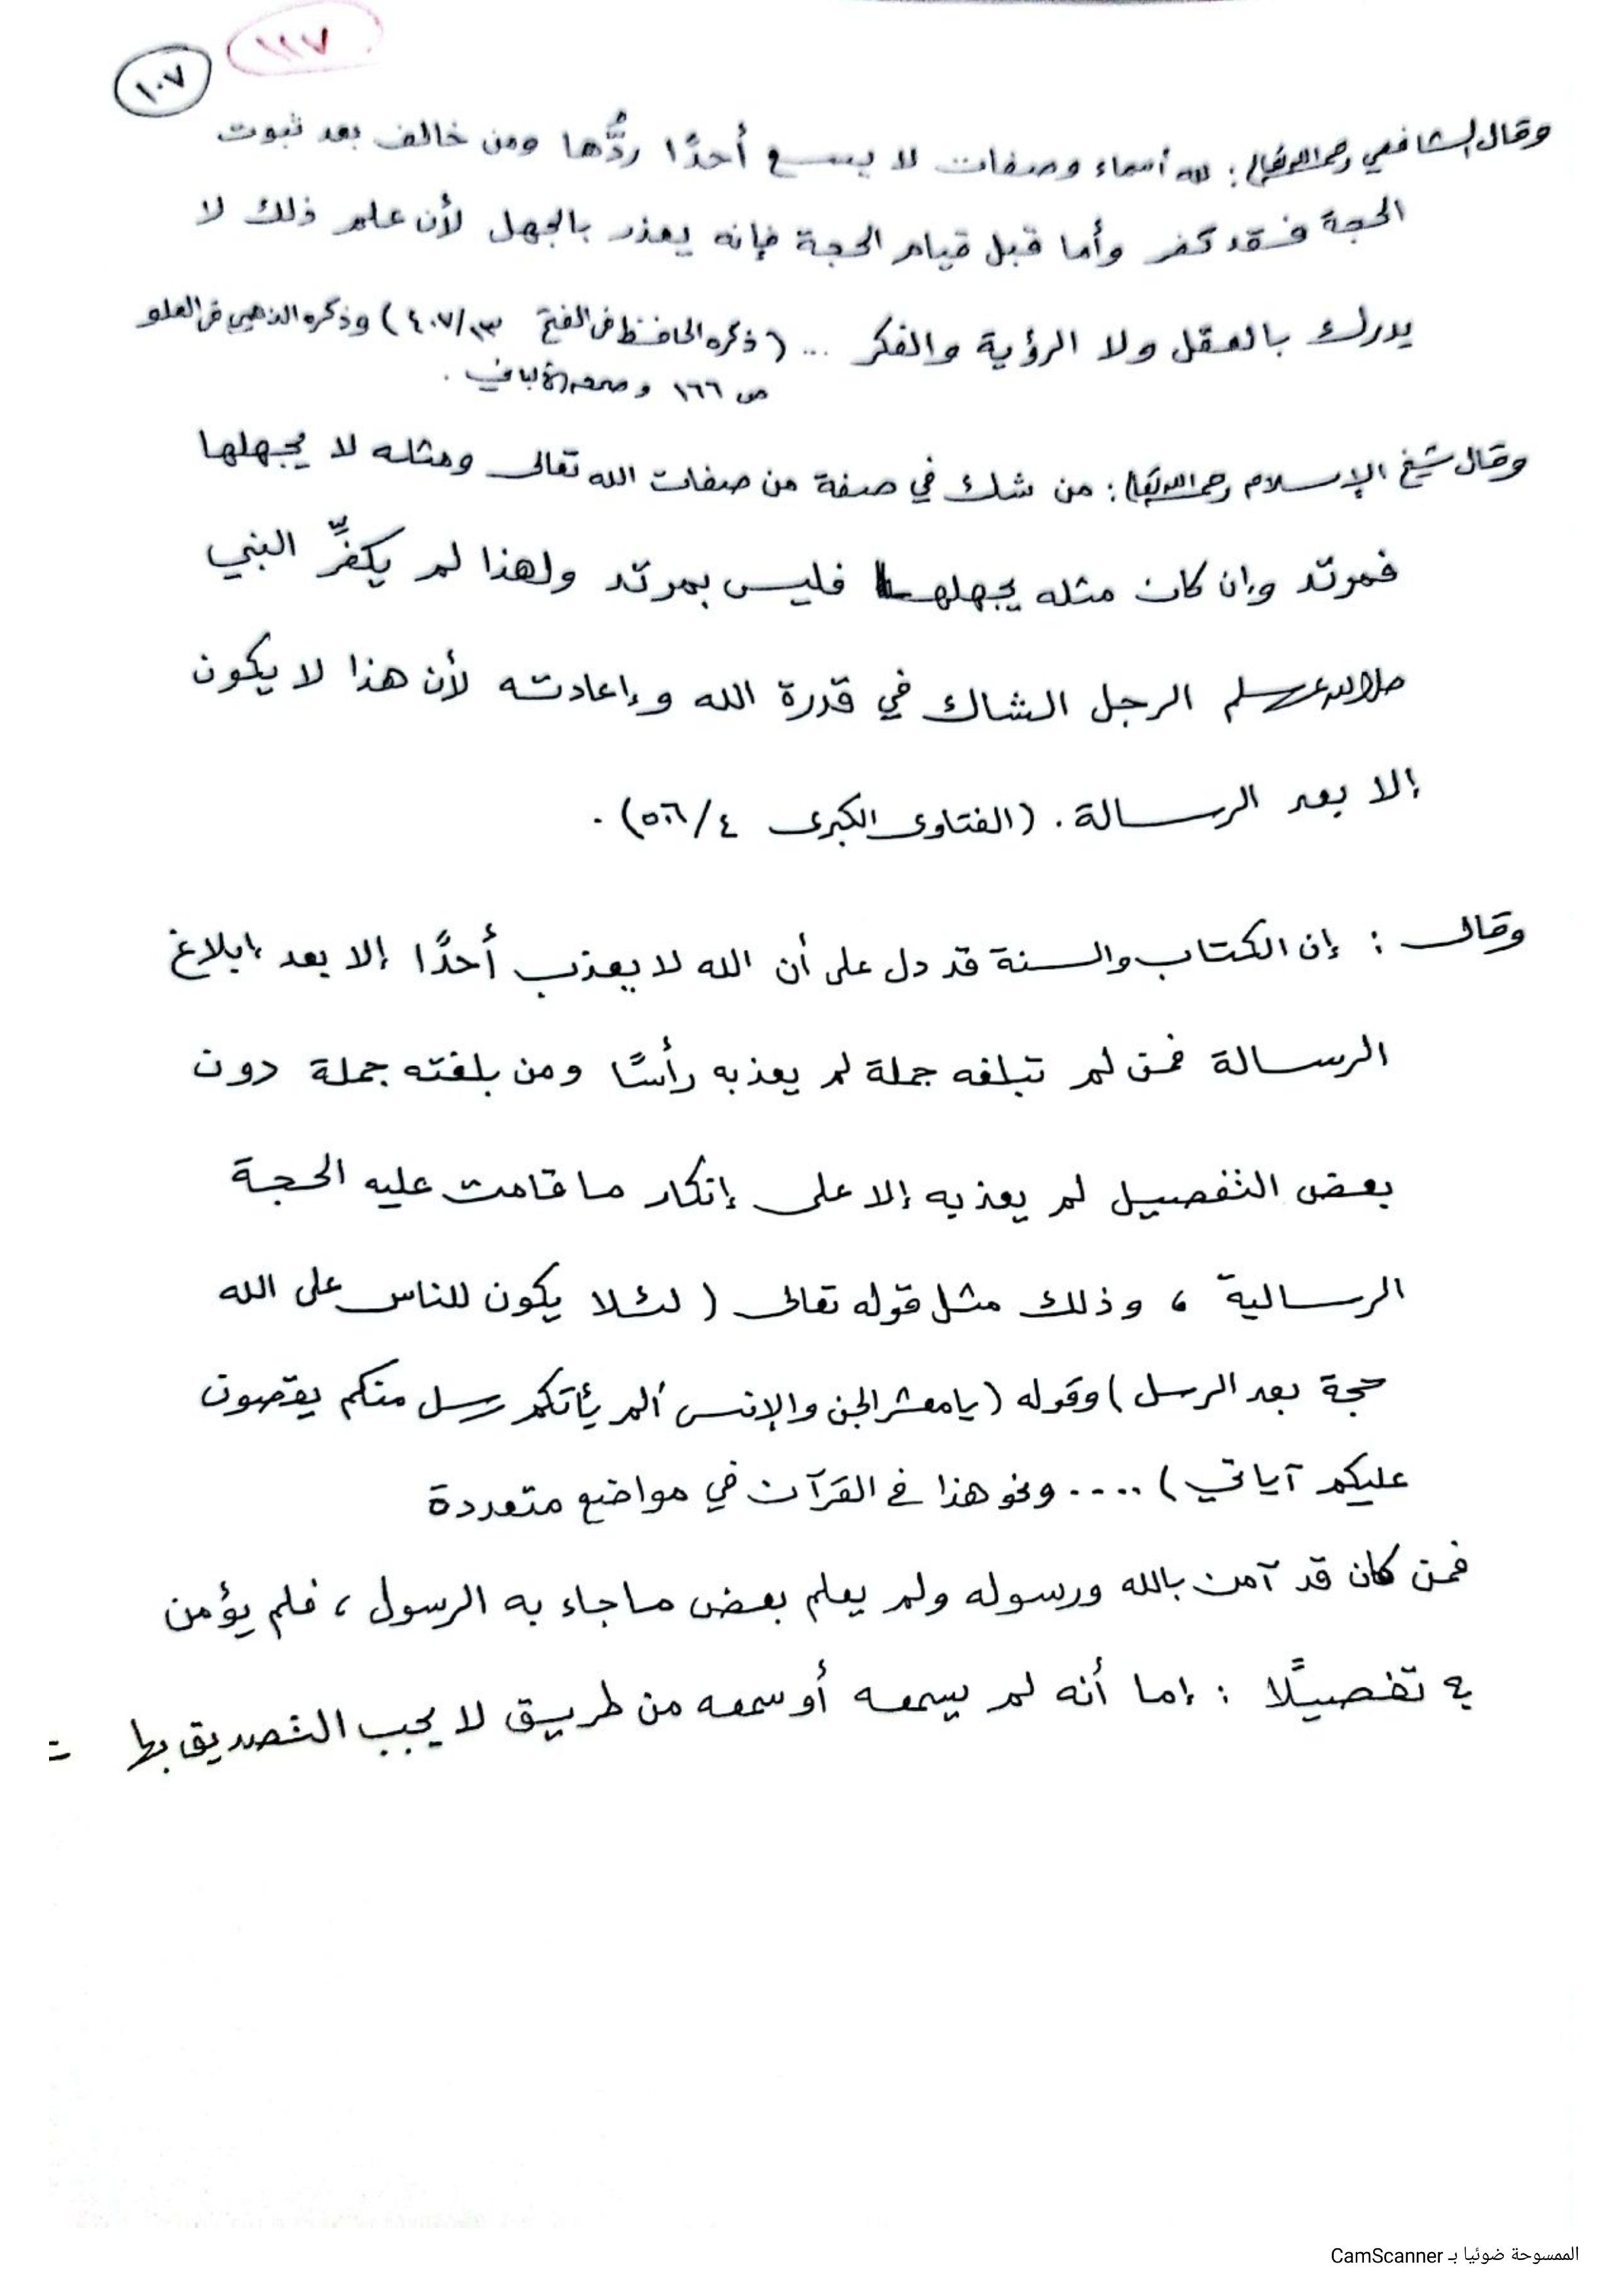 ١١٧
١٠٧
وقال الشافعي رحمه الله تعالى : لله أسماء وصفات لا يسع أحدًا ردُّها ومن خالف بعد ثبوت
الحجة فقد كفر وأما قبل قيام الحجة فإنه يعذر بالجهل لأن علم ذلك لا
يدرك بالعقل ولا الرؤية والفكر ... (ذكره الحافظ في الفتح ١٣/٤٠٧) وذكره الذهبي في العلو
ص ١٦٦ وصححه الألباني .
وقال شيخ الإسلام رحمه الله تعالى : من شك في صفة من صفات الله تعالى ومثله لا يجهلها
فمرتد وإن كان مثله يجهلها فليس بمرتد ولهذا لم يكفِّر النبي
صلى الله عليه وسلم الرجل الشاك في قدرة الله وإعادته لأن هذا لا يكون
إلا بعد الرسالة . (الفتاوى الكبرى ٤/ ) .
وقال : إن الكتاب والسنة قد دل على أن الله لا يعذب أحدًا إلا بعد إبلاغ
الرسالة فمن لم تبلغه جملة لم يعذبه رأسًا ومن بلغته جملة دون
بعض التفصيل لم يعذبه إلا على إنكار ما قامت عليه الحجة
الرسالية ، وذلك مثل قوله تعالى ( لئلا يكون للناس على الله
حجة بعد الرسل ) وقوله ( يا معشر الجن والإنس ألم يأتكم رسل منكم يقصون
عليكم آياتي ) .... ونحو هذا في القرآن في مواضع متعددة
فمن كان قد آمن بالله ورسوله ولم يعلم بعض ما جاء به الرسول ، فلم يؤمن
به تفصيلًا : إما أنه لم يسمعه أو سمعه من طريق لا يجب التصديق بها =
الممسوحة ضوئيا بـ CamScanner